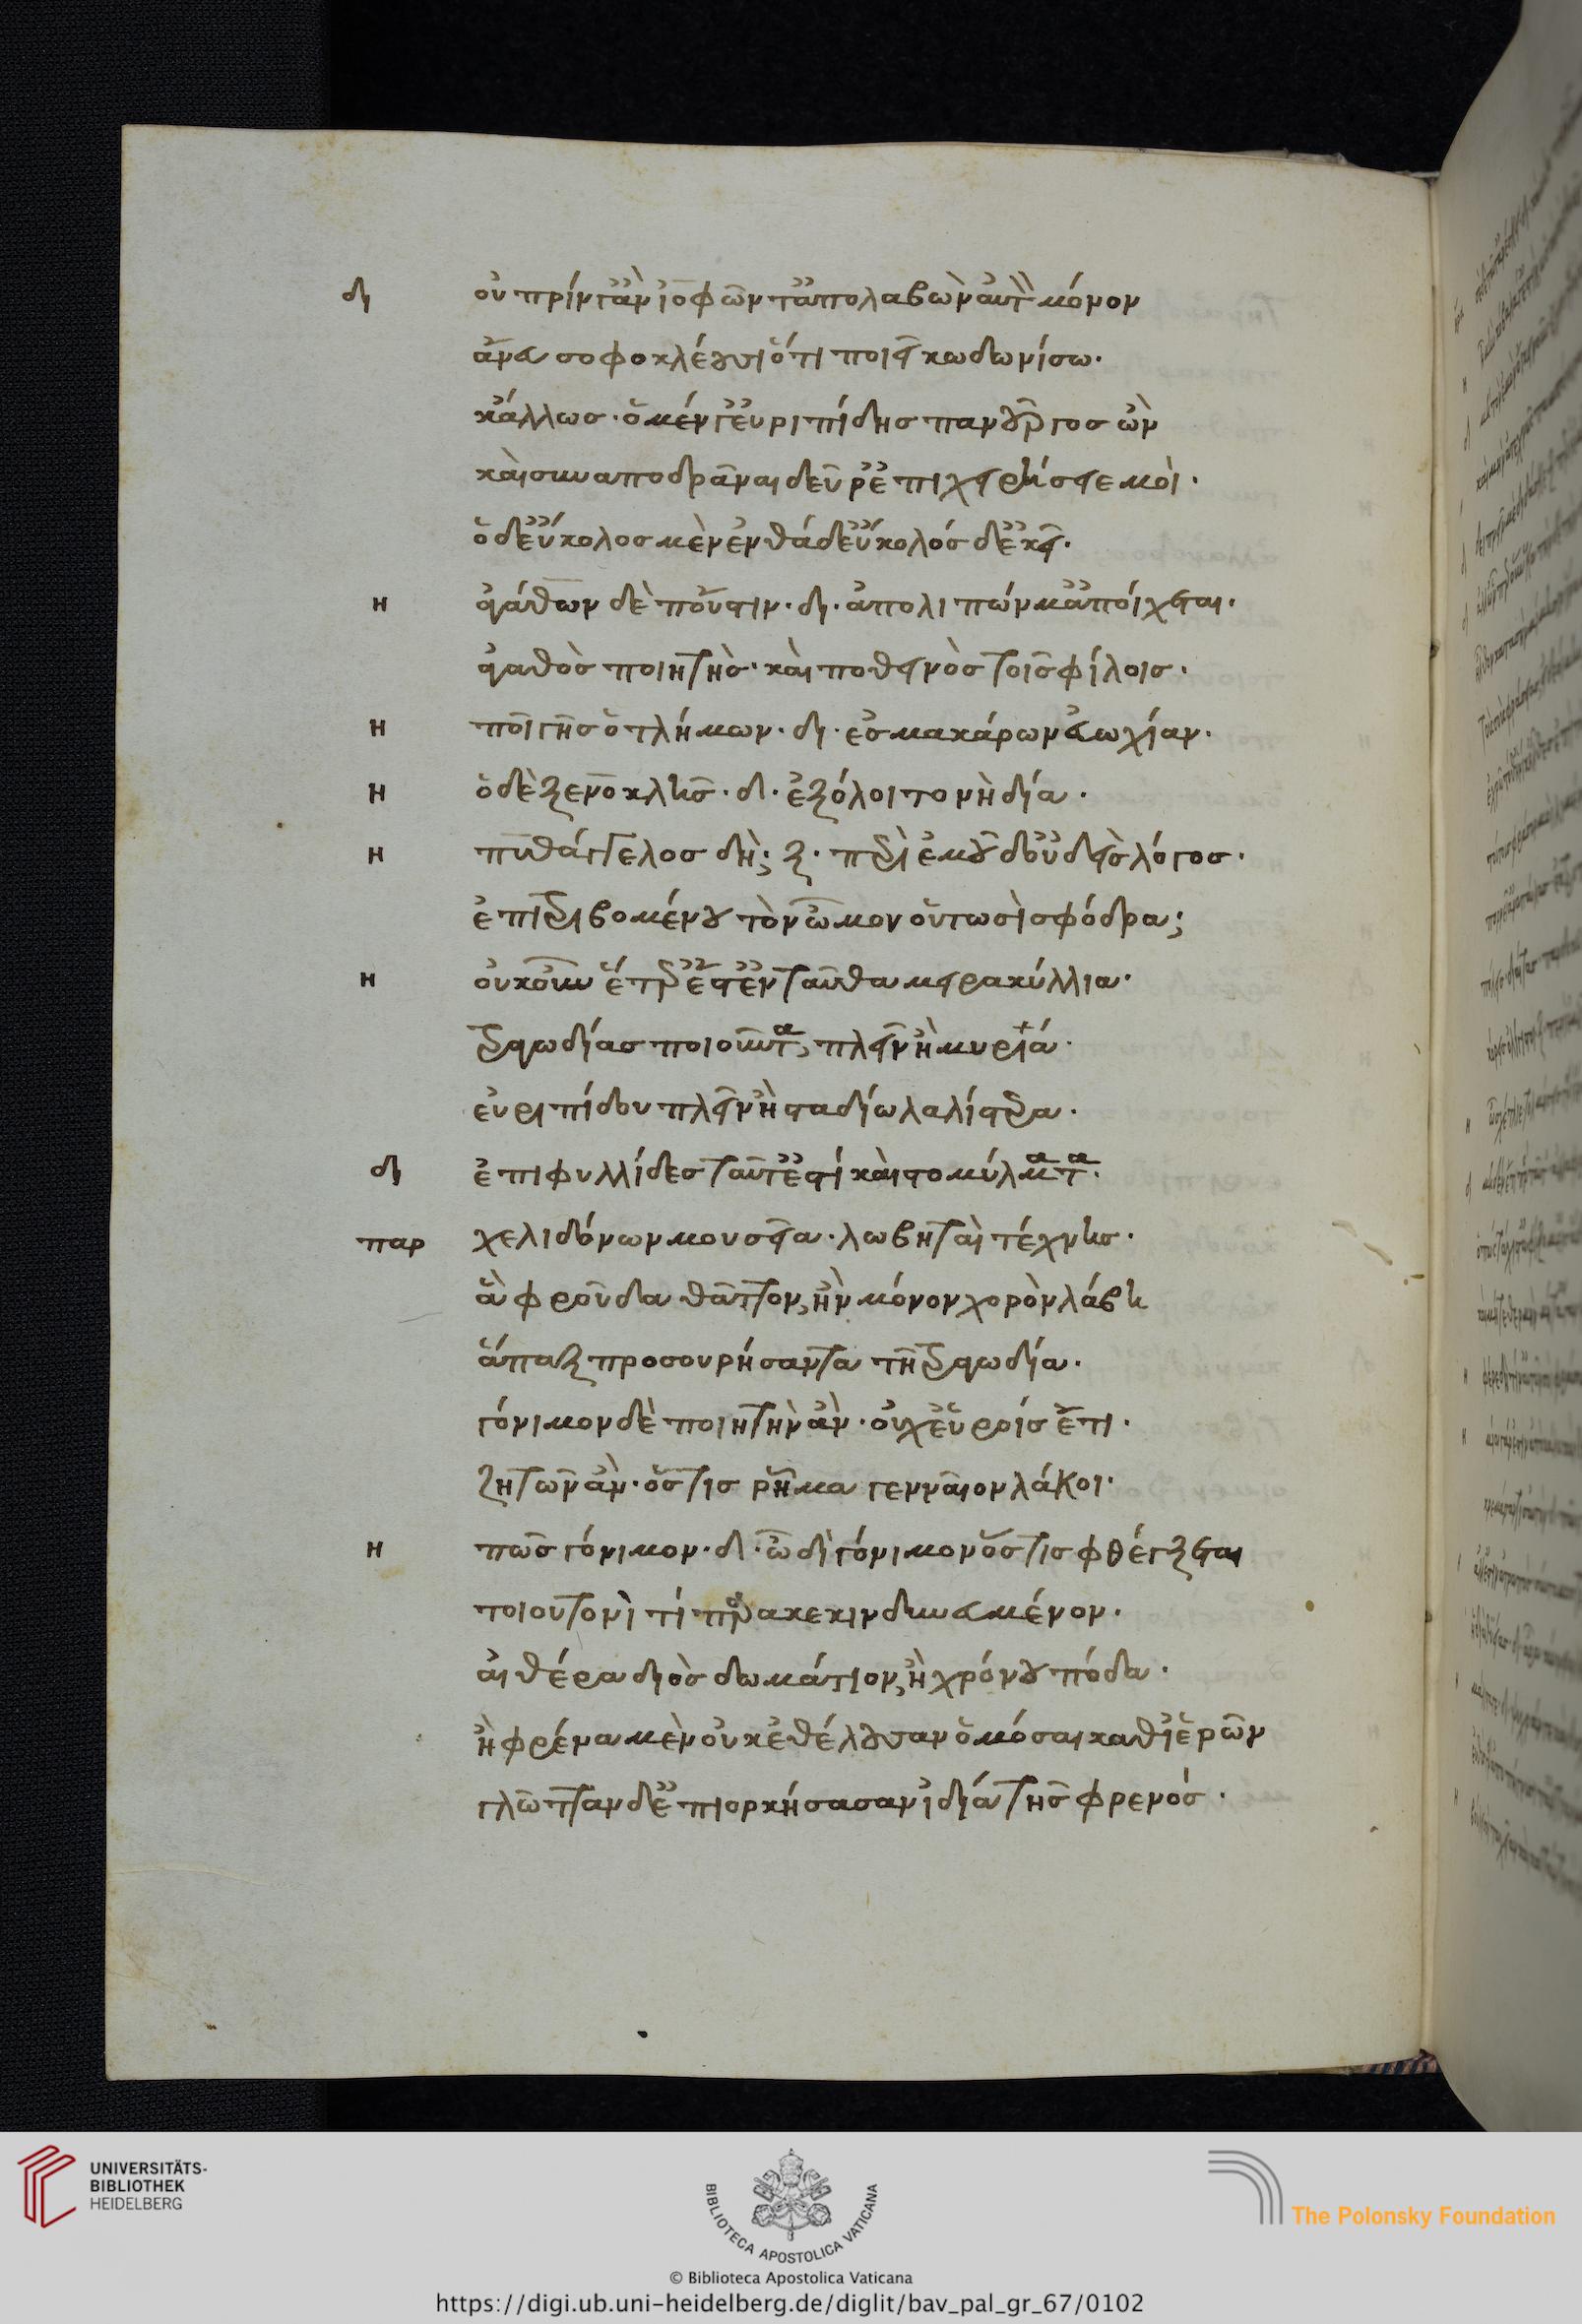 δι οὐ πρίν γ' ἂν ἰοφῶντ' ἀπολαβὼν αὐτὸν μόνον
ἄνευ σοφοκλέους ὅτι ποιεῖ κωδωνίσω.
κἄλλως. ὁ μέν γ' εὐριπίδης πανοῦργος ὢν
καὶ συναποδρᾶναι δεῦρ' ἐπιχειρήσει εμοὶ.
ὁ δ' εὔκολος μὲν ἐνθάδ' εὔκολός δ' ἐκεῖ.
η ἀγάθων δὲ ποῦ 'στιν. δι. ἀπολιπών μ' ἀποίχεται.
ἀγαθὸς ποιητὴς. καὶ ποθεινὸς τοῖς φίλοις.
η ποῖ γῆς ὁ τλήμων. δι. ἐς μακάρων εὐωχίαν.
η ὁ δὲ ξενοκλῆς. δι. ἐξόλοιτο νὴ δία.
η πυθάγγελος δὴ; ξ. περὶ ἐμοῦ δ' οὐδεὶς λόγος.
ἐπιτριβομένου τὸν ὦμον οὑτωσὶ σφόδρα;
η οὐκοῦν ἕτερ' ἔστ' ἐνταῦθα μειρακύλλια.
τραγωδίας ποιοῦντα, πλεῖν ἢ μυρία.
εὐριπίδου πλεῖν ἢ σταδίω λαλίστερα.
δι ἐπιφυλλίδες ταῦτ' ἐστί καὶ στομύλματα.
παρ χελιδόνων μουσεῖα. λωβηταὶ τέχνης.
ἃ φροῦδα θᾶττον, ἢν μόνον χορὸν λάβη
ἅπαξ προσουρήσαντα τῆ τραγωδία.
γόνιμον δὲ ποιητὴν ἂν. οὐχ εὕροις ἔτι.
ζητῶν ἂν. ὅστις ῥῆμα γενναῖον λάκοι.
η πῶς γόνιμον. δι. ὡδὶ γόνιμον ὅστις φθέγξεται
τοιουτονὶ τί παρακεκινδυνευμένον.
αἰθέρα διὸς δωμάτιον, ἢ χρόνου πόδα.
ἢ φρένα μὲν οὐκ ἐθέλουσαν ὀμόσαι καθ' ἱερῶν
γλῶτταν δ' ἐπιορκήσασαν ἰδία τῆς φρενός.
UNIVERSITÄTS-
BIBLIOTHEK
HEIDELBERG
BIBLIOTECA APOSTOLICA VATICANA
The Polonsky Foundation
© Biblioteca Apostolica Vaticana
https://digi.ub.uni-heidelberg.de/diglit/bav_pal_gr_67/0102